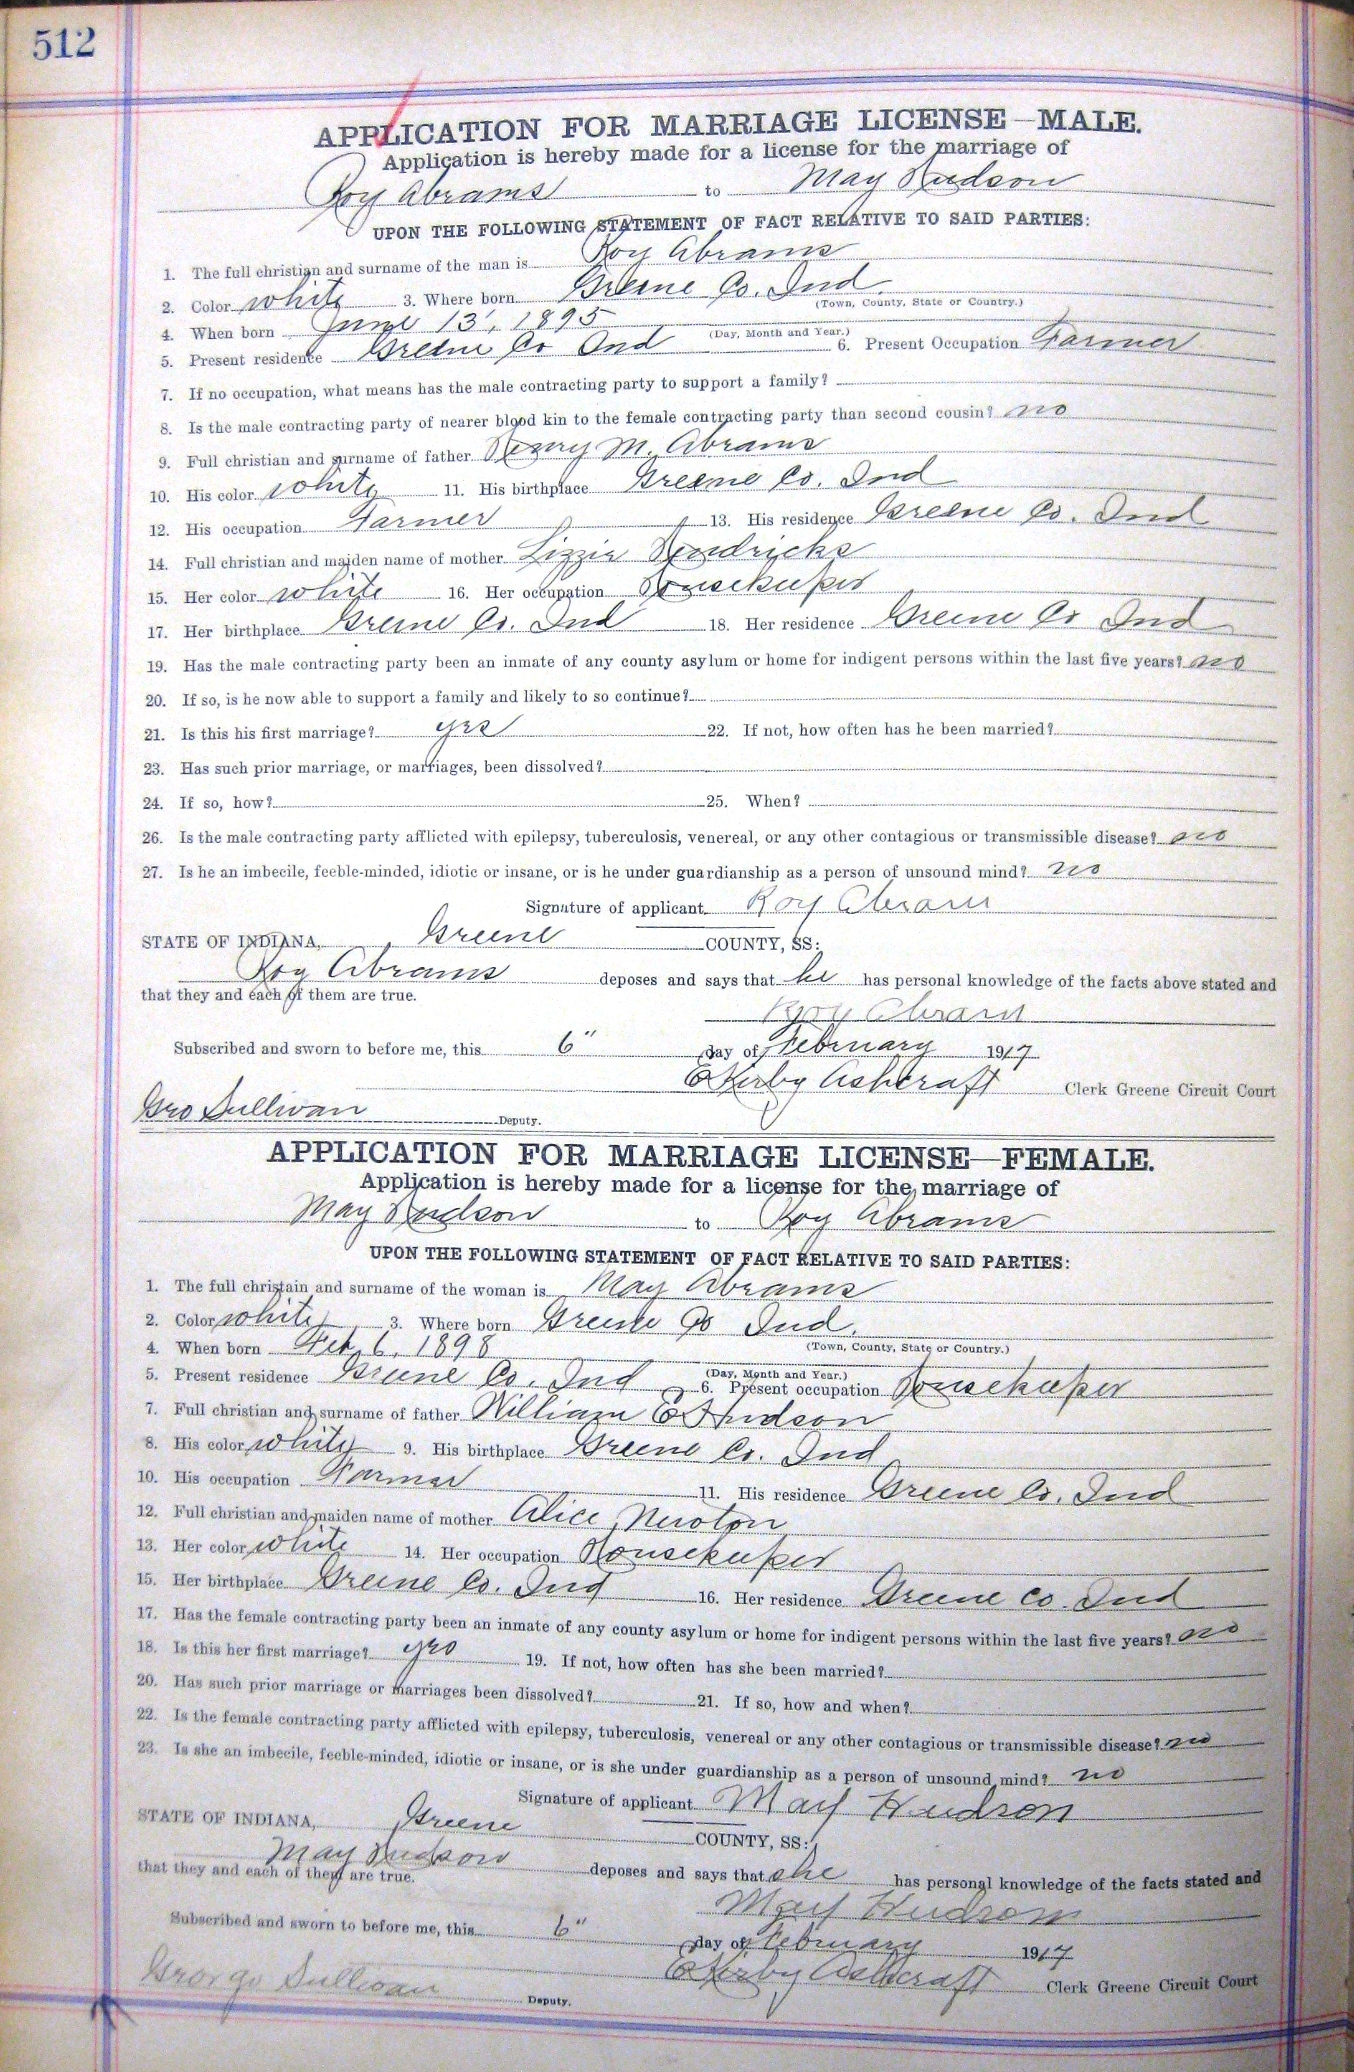 512
APPLICATION FOR MARRIAGE LICENSE—MALE.
Application is hereby made for a license for the marriage of
Roy Abrams to May Hudson
UPON THE FOLLOWING STATEMENT OF FACT RELATIVE TO SAID PARTIES:
1. The full christian and surname of the man is Roy Abrams
2. Color white 3. Where born Greene Co. Ind.
(Town, County, State or Country.)
4. When born June 13, 1895
(Day, Month and Year.)
5. Present residence Greene Co Ind 6. Present Occupation Farmer
7. If no occupation, what means has the male contracting party to support a family?
8. Is the male contracting party of nearer blood kin to the female contracting party than second cousin? no
9. Full christian and surname of father Henry M. Abrams
10. His color white 11. His birthplace Greene Co. Ind
12. His occupation Farmer 13. His residence Greene Co. Ind
14. Full christian and maiden name of mother Lizzie Hendricks
15. Her color white 16. Her occupation Housekeeper
17. Her birthplace Greene Co. Ind 18. Her residence Greene Co Ind
19. Has the male contracting party been an inmate of any county asylum or home for indigent persons within the last five years? no
20. If so, is he now able to support a family and likely to so continue?
21. Is this his first marriage? yes 22. If not, how often has he been married?
23. Has such prior marriage, or marriages, been dissolved?
24. If so, how? 25. When?
26. Is the male contracting party afflicted with epilepsy, tuberculosis, venereal, or any other contagious or transmissible disease? no
27. Is he an imbecile, feeble-minded, idiotic or insane, or is he under guardianship as a person of unsound mind? no
Signature of applicant Roy Abram
STATE OF INDIANA, Greene COUNTY, SS:
Roy Abrams deposes and says that he has personal knowledge of the facts above stated and
that they and each of them are true.
Roy Abram
Subscribed and sworn to before me, this 6" day of February 1917
E Kirby Ashcraft Clerk Greene Circuit Court
Geo Sullivan Deputy.
APPLICATION FOR MARRIAGE LICENSE—FEMALE.
Application is hereby made for a license for the marriage of
May Hudson to Roy Abrams
UPON THE FOLLOWING STATEMENT OF FACT RELATIVE TO SAID PARTIES:
1. The full christain and surname of the woman is May Abrams
2. Color white 3. Where born Greene Co Ind.
(Town, County, State or Country.)
4. When born Feb 6, 1898
(Day, Month and Year.)
5. Present residence Greene Co. Ind 6. Present occupation Housekeeper
7. Full christian and surname of father William E Hudson
8. His color white 9. His birthplace Greene Co. Ind
10. His occupation Farmer 11. His residence Greene Co. Ind
12. Full christian and maiden name of mother Alice Newton
13. Her color white 14. Her occupation Housekeeper
15. Her birthplace Greene Co. Ind 16. Her residence Greene Co. Ind
17. Has the female contracting party been an inmate of any county asylum or home for indigent persons within the last five years? no
18. Is this her first marriage? yes 19. If not, how often has she been married?
20. Has such prior marriage or marriages been dissolved? 21. If so, how and when?
22. Is the female contracting party afflicted with epilepsy, tuberculosis, venereal or any other contagious or transmissible disease? no
23. Is she an imbecile, feeble-minded, idiotic or insane, or is she under guardianship as a person of unsound mind? no
Signature of applicant May Hudson
STATE OF INDIANA, Greene COUNTY, SS:
May Hudson deposes and says that she has personal knowledge of the facts stated and
that they and each of them are true.
May Hudson
Subscribed and sworn to before me, this 6" day of February 1917
E Kirby Ashcraft Clerk Greene Circuit Court
George Sullivan Deputy.